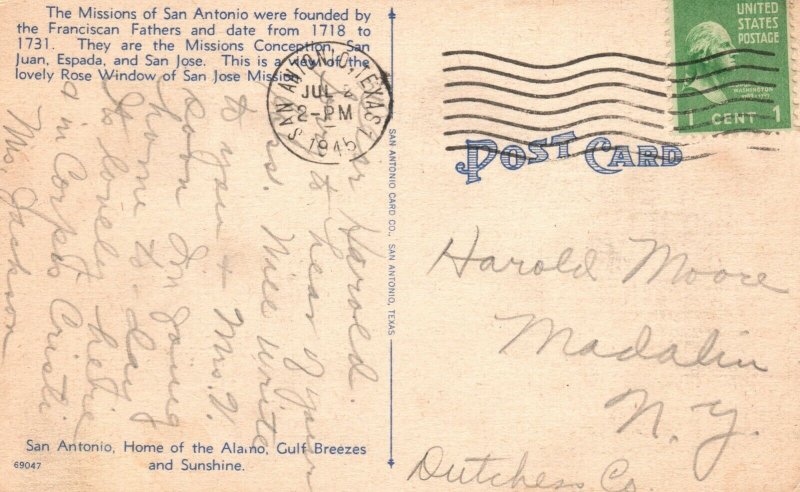 The Missions of San Antonio were founded by
the Franciscan Fathers and date from 1718 to
1731. They are the Missions Conception, San
Juan, Espada, and San Jose. This is a view of the
lovely Rose Window of San Jose Mission.
SAN ANTONIO, TEXAS
JUL 2
2-PM
194
UNITED
STATES
POSTAGE
WASHINGTON
1 CENT 1
POST CARD
SAN ANTONIO CARD CO., SAN ANTONIO, TEXAS
Harold.
to hear of your
Will write
to you & Mrs. V.
soon I'm going
home to-day
Its lovely here
in Corpus Cristi
Mrs. Jackson
Harold Moore
Madalin
N. Y.
Dutchess Co.
San Antonio, Home of the Alamo, Gulf Breezes
and Sunshine.
69047